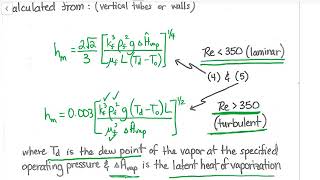 calculated from: (vertical tubes or walls)
hm = 2√2/3 [kf³ ρf² g ΔĤvap / μf L (Td - To)]^1/4
Re < 350 (laminar)
(4) & (5)
hm = 0.003 [kf³ ρf² g ΔĤvap (Td - To) L / μf³]^1/2
Re > 350
(turbulent)
where Td is the dew point of the vapor at the specified
operating pressure & ΔĤvap is the latent heat of vaporisation